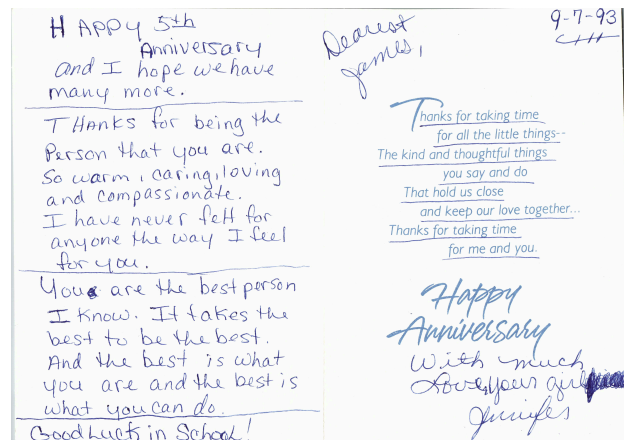 HAPPY 5th
Anniversary
and I hope we have
many more.
THANKS for being the
Person that you are.
So warm, caring, loving
and compassionate.
I have never felt for
anyone the way I feel
for you.
You are the best person
I know. It takes the
best to be the best.
And the best is what
you are and the best is
what you can do.
Good Luck in School!
9-7-93
Dearest
James,
Thanks for taking time
for all the little things--
The kind and thoughtful things
you say and do
That hold us close
and keep our love together...
Thanks for taking time
for me and you.
Happy
Anniversary
With much
Love, your girl
Jennifer